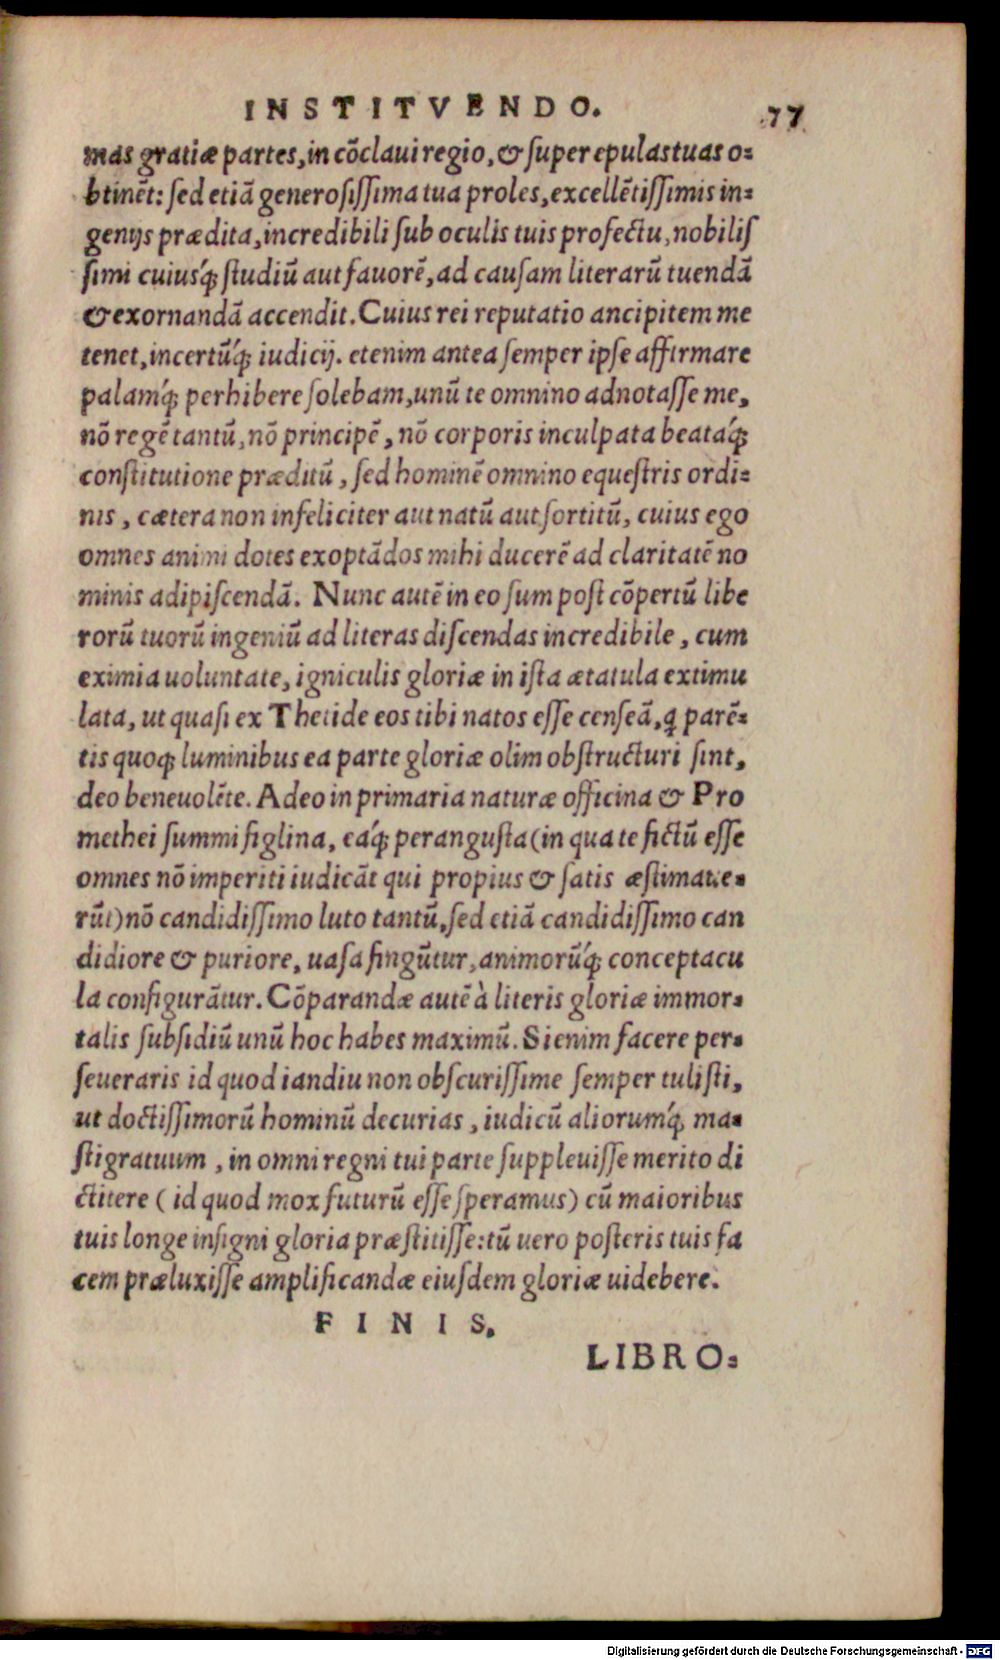 INSTITVENDO. 77
mas gratiæ partes, in cōclaui regio, & super epulas tuas o=
btinēt: sed etiā generosiſſima tua proles, excellētiſſimis in=
genijs prædita, incredibili ſub oculis tuis profectu, nobiliſ
ſimi cuiusq́; ſtudiū aut fauorē, ad cauſam literarū tuendā
& exornandā accendit. Cuius rei reputatio ancipitem me
tenet, incertūq́; iudicij. etenim antea ſemper ipſe affirmare
palamq́; perhibere ſolebam, unū te omnino adnotaſſe me,
nō regē tantū, nō principē, nō corporis inculpata beataq́;
conſtitutione præditū, ſed hominē omnino equeſtris ordi=
nis, cætera non infeliciter aut natū aut ſortitū, cuius ego
omnes animi dotes exoptādos mihi ducerē ad claritatē no
minis adipiſcendā. Nunc autē in eo ſum poſt cōpertū libe
rorū tuorū ingeniū ad literas diſcendas incredibile, cum
eximia uoluntate, igniculis gloriæ in iſta ætatula extimu
lata, ut quaſi ex Thetide eos tibi natos eſſe cenſeā, q̨ parē=
tis quoq; luminibus ea parte gloriæ olim obſtructuri ſint,
deo beneuolēte. Adeo in primaria naturæ officina & Pro
methei ſummi figlina, eaq́; peranguſta (in qua te fictū eſſe
omnes nō imperiti iudicāt qui propius & ſatis æſtimaue=
rūt) nō candidiſſimo luto tantū, ſed etiā candidiſſimo can
didiore & puriore, uaſa fingūtur, animorūq́; conceptacu
la configurātur. Cōparandæ autē à literis gloriæ immor=
talis ſubſidiū unū hoc habes maximū. Si enim facere per=
ſeueraris id quod iandiu non obſcuriſſime ſemper tuliſti,
ut doctiſſimorū hominū decurias, iudicū aliorumq́; ma=
ſtigratuum, in omni regni tui parte ſuppleuiſſe merito di
ctitere ( id quod mox futurū eſſe ſperamus) cū maioribus
tuis longe inſigni gloria præſtitiſſe: tū uero poſteris tuis fa
cem præluxiſſe amplificandæ eiuſdem gloriæ uidebere.
FINIS.
LIBRO=
Digitalisierung gefördert durch die Deutsche Forschungsgemeinschaft - DFG